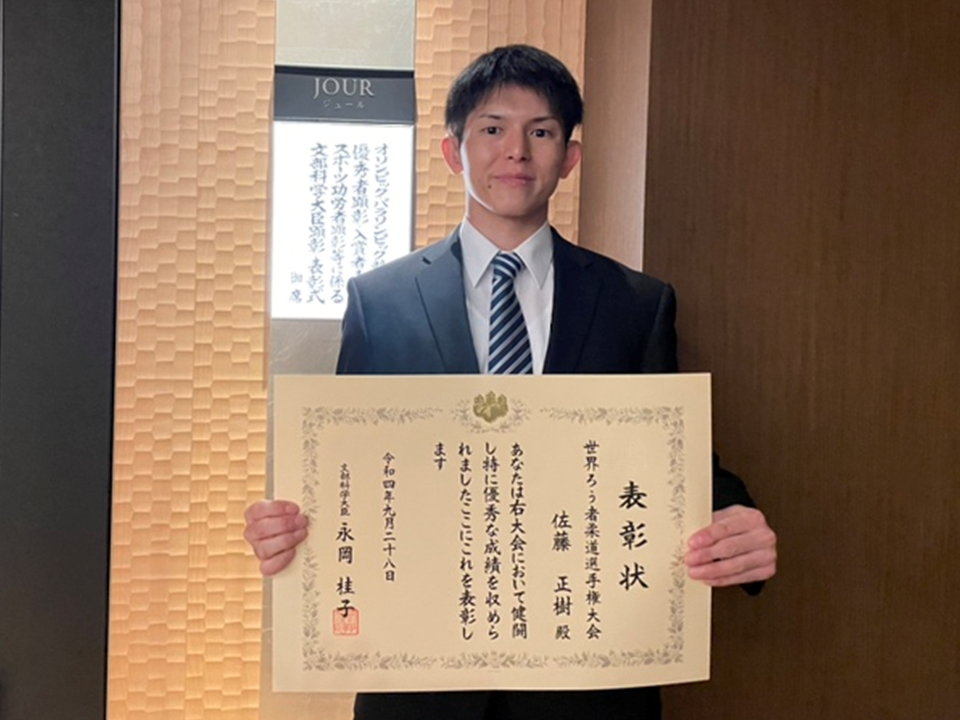 JOUR
ジュール
オリンピックパラリンピック
優秀者顕彰入賞者
スポーツ功労者顕彰等に係る
文部科学大臣顕彰・表彰式
御席
表彰状
世界ろう者柔道選手権大会
佐藤 正樹 殿
あなたは右大会において健闘
し特に優秀な成績を収めら
れましたここにこれを表彰し
ます
令和四年九月二十八日
文部科学大臣 永岡 桂子